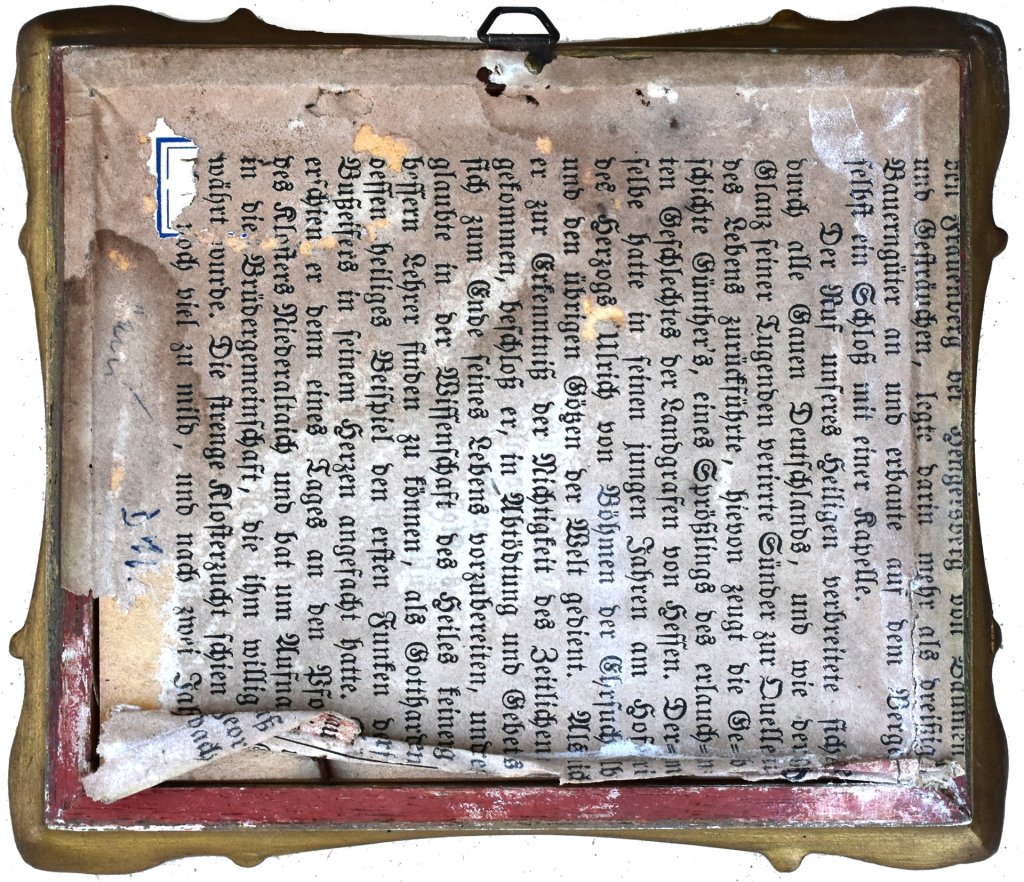 Frauenberg bei Hengersberg von Tannen
und Gesträuchen, legte darin mehr als dreißig
Bauerngüter an und erbaute auf dem Berge
selbst ein Schloß mit einer Kapelle.
Der Ruf unseres Heiligen verbreitete sich
durch alle Gauen Deutschlands, und wie der
Glanz seiner Tugenden verirrte Sünder zur Quelle
des Lebens zurückführte, hievon zeugt die Ge=
schichte Günther's, eines Sprößlings des erlauch=
ten Geschlechtes der Landgrafen von Hessen. Der=
selbe hatte in seinen jungen Jahren am Hof
des Herzogs Ulrich von Böhmen der Ehrsuch
und den übrigen Götzen der Welt gedient. Als
er zur Erkenntniß der Nichtigkeit des Zeitlichen
gekommen, beschloß er, in Abtödtung und Gebet
sich zum Ende seines Lebens vorzubereiten, und
glaubte in der Wissenschaft des Heiles keinen
bessern Lehrer finden zu können, als Gotthard
dessen heiliges Beispiel den ersten Funken des
Bußeifers in seinem Herzen angefacht hatte.
erschien er denn eines Tages an den Pfo
des Klosters Niederaltaich und bat um Aufna
in die Brüdergemeinschaft, die ihm willig
währt wurde. Die strenge Klosterzucht schien
noch viel zu mild, und nach zwei